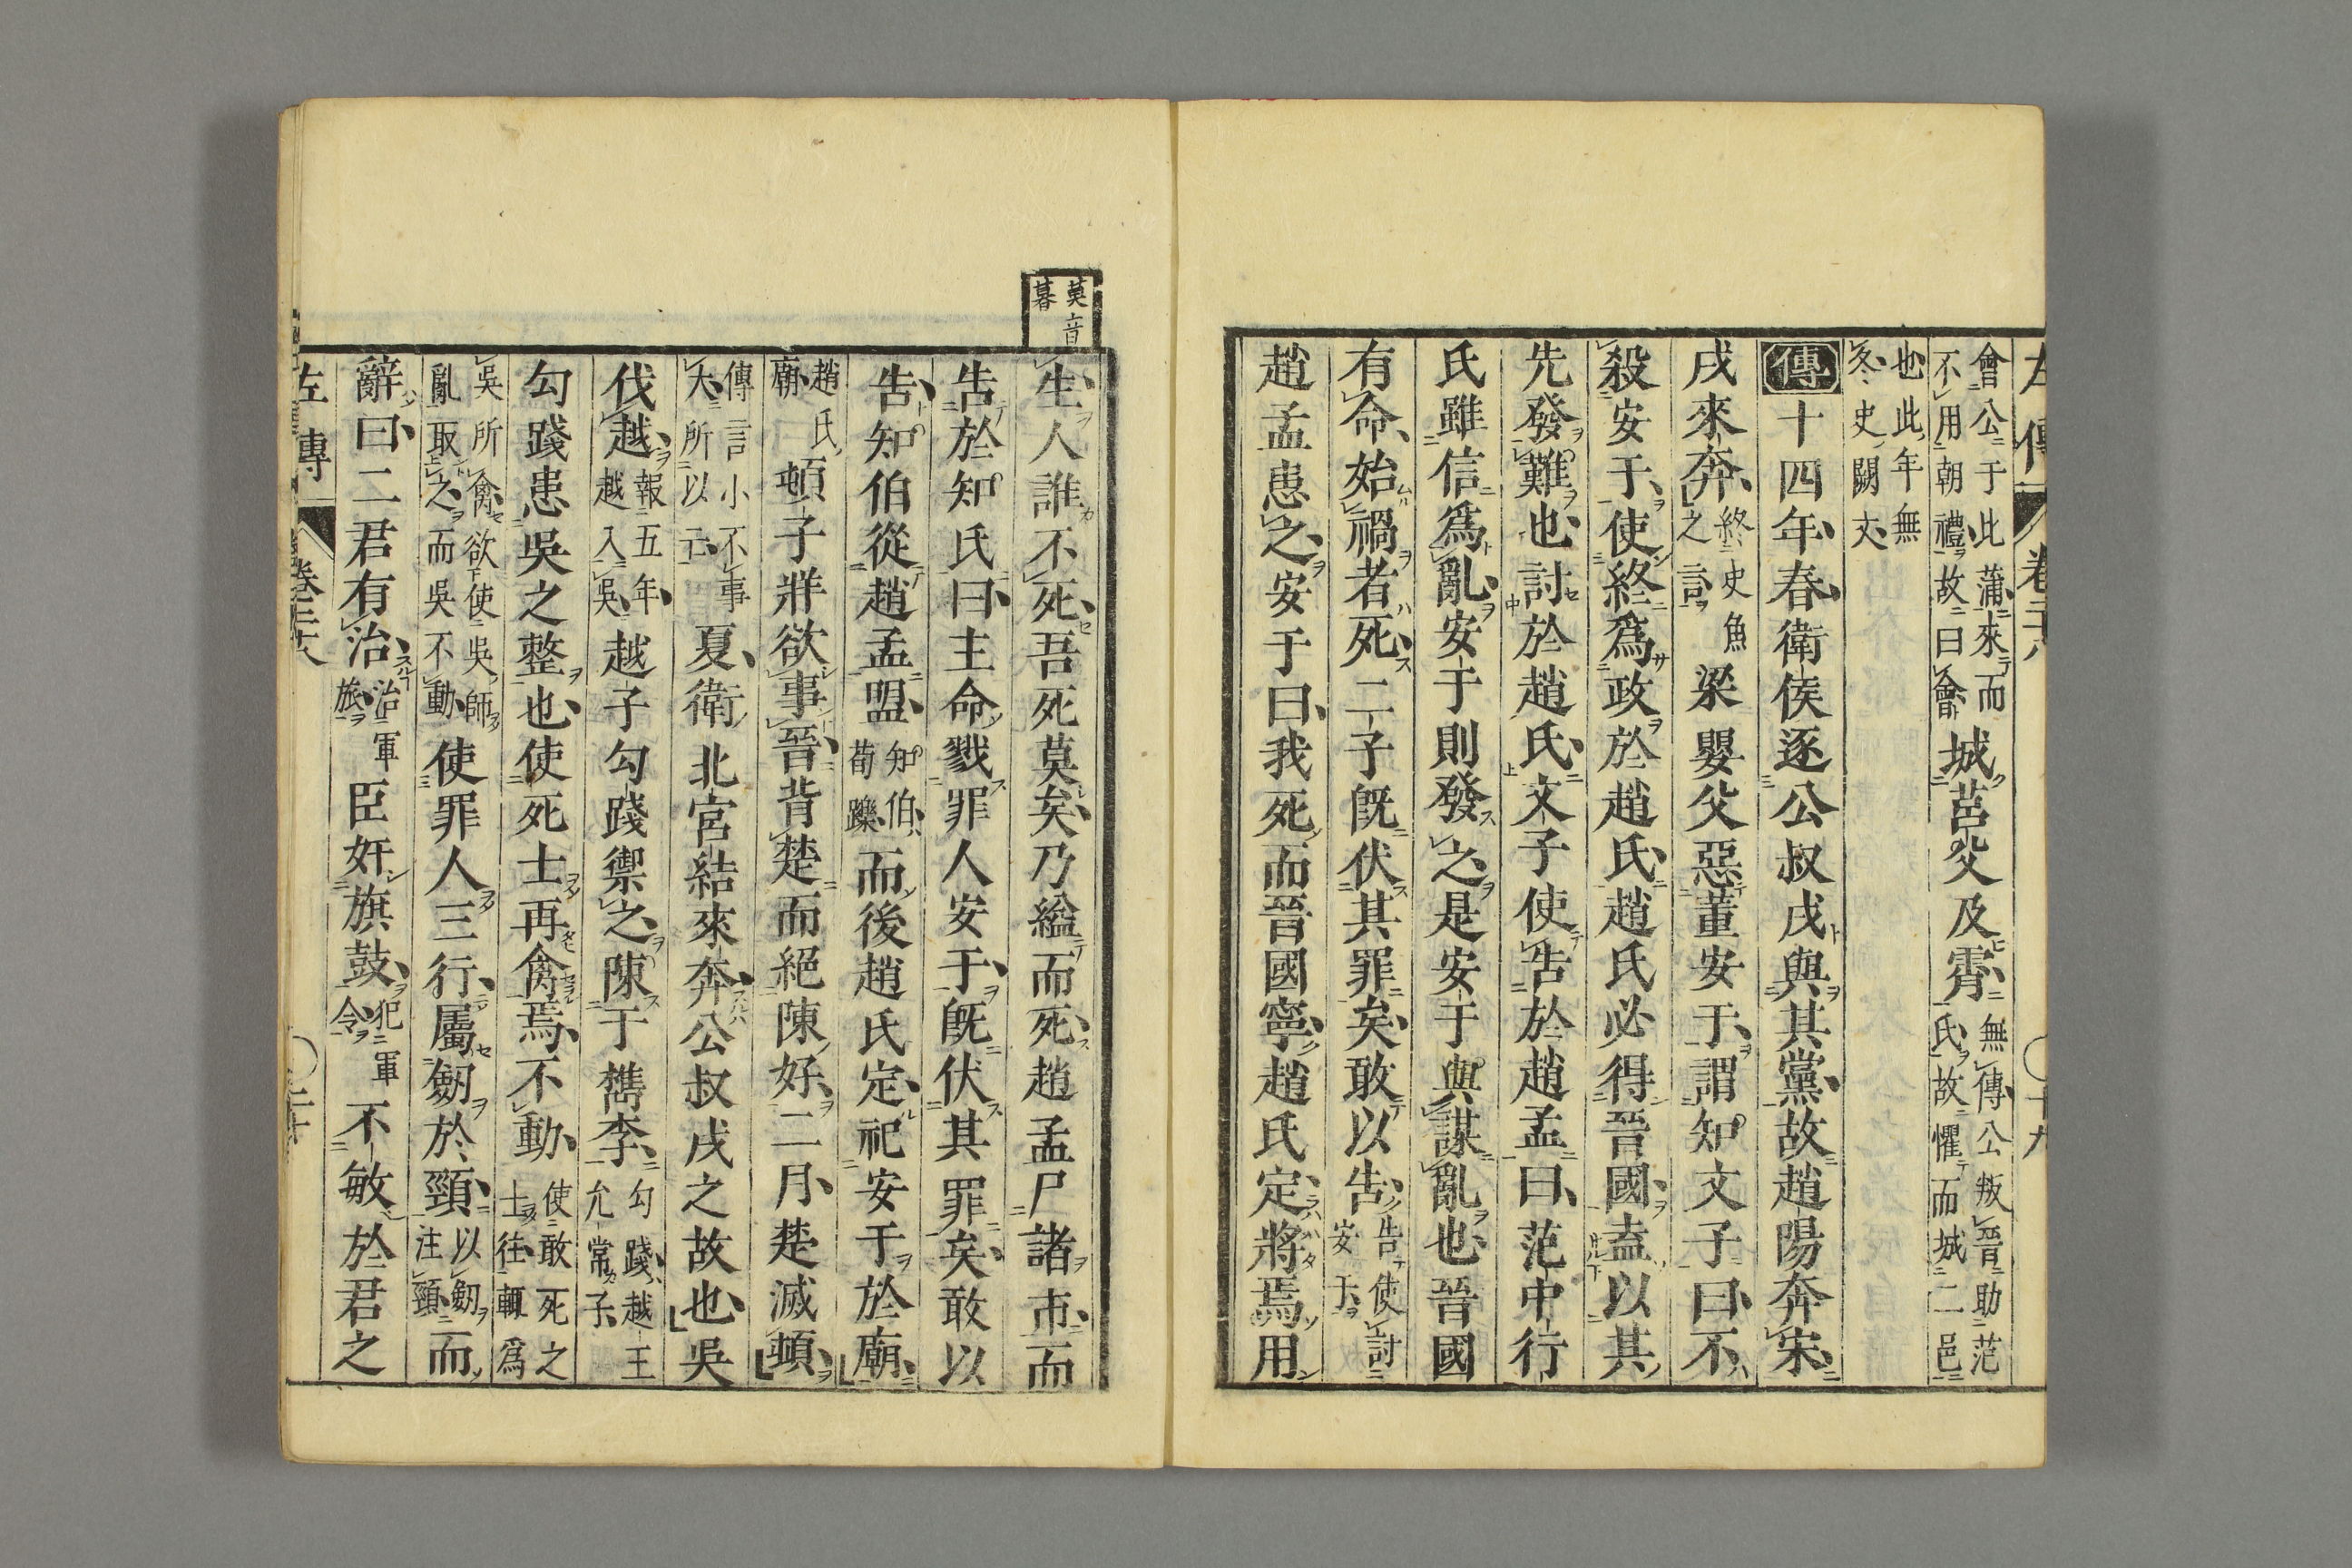 左傳 卷二十八 ○十九
會公于此蒲來而不用朝禮故曰會城莒父及霄無傳公叛晉助范氏故懼而城二邑
也此年無冬史闕文
傳十四年春衛侯逐公叔戌與其黨故趙陽奔宋
戌來奔終史魚之言梁嬰父惡董安于謂知文子曰不
殺安于使終爲政於趙氏趙氏必得晉國盍以其
先發難也討於趙氏文子使告於趙孟曰范中行
氏雖信爲亂安于則發之是安于與謀亂也晉國
有命始禍者死二子既伏其罪矣敢以告告使討安于
趙孟患之安于曰我死而晉國寧趙氏定將焉用
莫音暮
生人誰不死吾死莫矣乃縊而死趙孟尸諸市而
告於知氏曰主命戮罪人安于既伏其罪矣敢以
告知伯從趙孟盟知伯荀躒而後趙氏定祀安于於廟
趙氏廟頓子牂欲事晉背楚而絕陳好二月楚滅頓
傳言小不事大所以亡夏衛北宮結來奔公叔戌之故也吳
伐越報五年越入吳越子勾踐禦之陳于檇李勾踐越王允常子
勾踐患吳之整也使死士再禽焉不動使敢死之士往輒爲
吳所禽欲使吳師亂取之而吳不動使罪人三行屬劒於頸以劒注頸而
辭曰二君有治治軍旅臣奸旗鼓犯軍令不敏於君之
左傳 卷二十八 ○二十